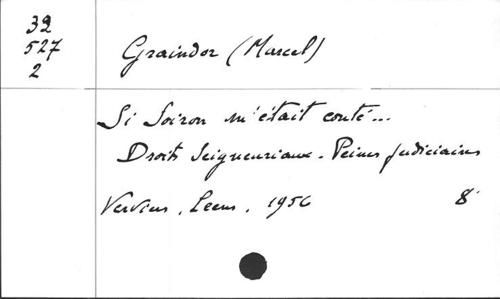 32
527
2
Graindor (Marcel)
Si Soiron m'était conté...
Droits Seigneuriaux. Peines judiciaires
Verviers, Leens, 1956 8°